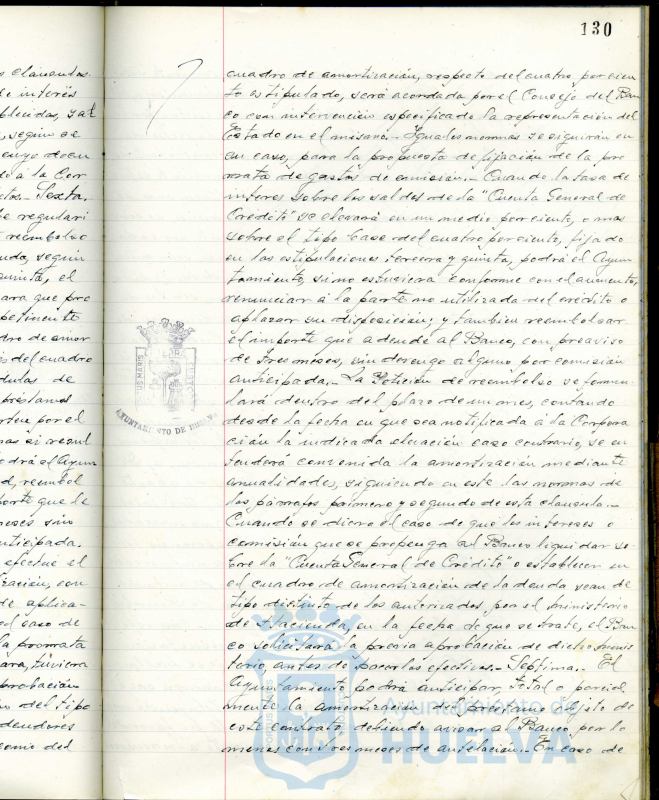 130
s clausulas.
de interés
, según se
cuyo docu
do á la Cor
Sexta.
e regulari
reembolso
uda, según
quinta, el
ara que pro
pertinente
dro de amor
del cuadro
dulas de
préstamos
por el
odrá el Ayun
d, reembol
porte que le
meses sin
nticipada.
efectúe el
zación, con
de aplica-
el caso de
la prorrata
ara, tuviera
probación
no del tipo
del
cuadro de amortización, respecto del cuatro por cien
to estipulado, será acordada por el Consejo del Ban
co con intervención especificada la representación del
Estado en el mismo.- Iguales normas se seguirán en
su caso, para la propuesta de fijación de la pro
rrata de gastos de emisión.- Cuando la tasa de
interes sobre los saldos de la "Cuenta General de
Crédito" se elevará en un medio por ciento, o mas
sobre el tipo base del cuatro por ciento, fijado
en las estipulaciones tercera y quinta, podrá el Ayun
tamiento, si no estuviera conforme con el aumento,
renunciar á la parte no utilizada del crédito o
aplazar su disposición; y tambien reembolsar
el importe que adeude al Banco, con preaviso
de tres meses, sin devengo alguno por comisión
anticipada.- La petición de reembolso se formu
lará dentro del plazo de un mes, contando
desde la fecha en que sea notificada á la Corpora
ción la indicada elevación caso contrario, se en
tenderá convenida la amortización mediante
anualidades, siguiendo en este las normas de
los párrafos primero y segundo de esta clausula.-
Cuando se diera el caso de que los intereses o
comisión que se proponga al Banco liquidar so
bre la "Cuenta General de Crédito" o establecer en
el cuadro de amortización de la deuda sean de
tipo distinto de los autorizados, por el Ministerio
de Hacienda, en la fecha de que se trate, el Ban
co solicitará la previa aprobación de dicho minis
terio, antes de hacerlos efectivos.- Séptima.- El
Ayuntamiento podrá anticipar, total o parcial
mente la amortización del préstamo objeto de
este contrato, debiendo avisar al Banco, por lo
menos con tres meses de antelación.- En caso de
AYUNTAMIENTO DE HUELVA
Ayuntamiento de
HUELVA